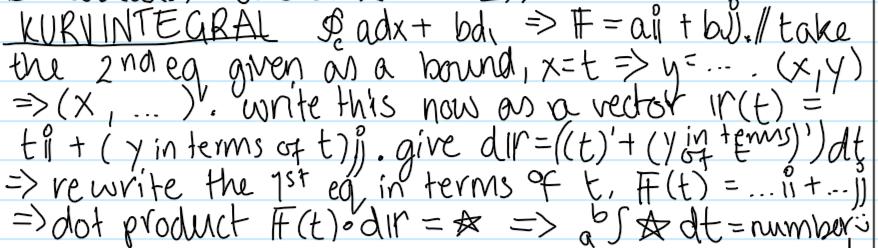 KURVINTEGRAL ∮c adx + bdy => 𝔽 = aii + bjj. // take
the 2nd eq given as a bound, x=t => y= ... . (x,y)
=> (x, ...). write this now as a vector ir(t) =
tii + (y in terms of t)jj. give dir = ((t)' + (y in terms of t)')dt
=> rewrite the 1st eq in terms of t, 𝔽(t) = ...ii + ...jj
=> dot product 𝔽(t)•dir = ☆ => a∫b ☆ dt = number